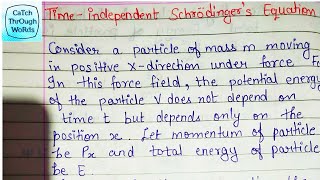 CaTch
ThrOugh
WoRds
Time-independent Schrödinger's Equation
Consider a particle of mass m moving
in positive x-direction under force F
In this force field, the potential energy
of the particle V does not depend on
time t but depends only on the
position x. Let momentum of particle
be Px and total energy of particle
be E.